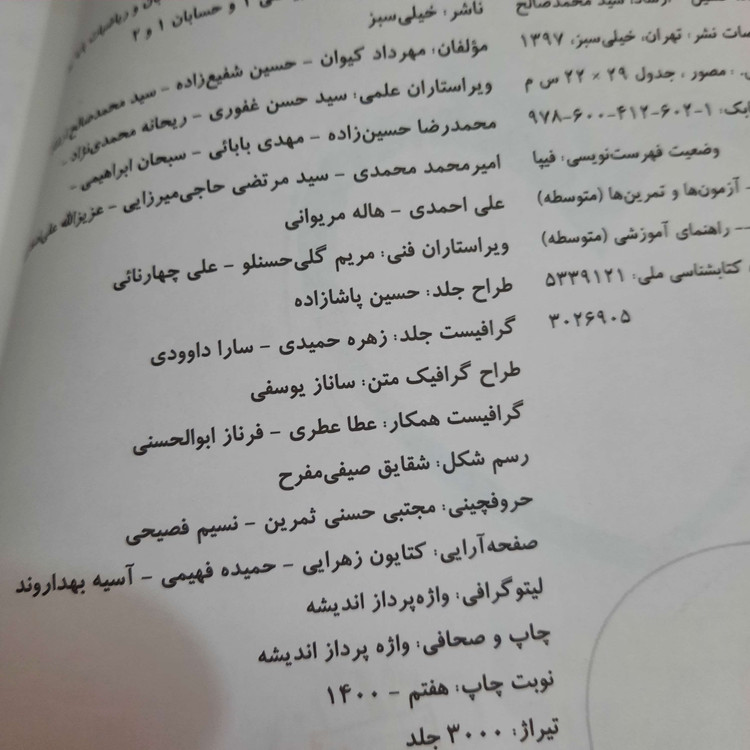 ی ۱ و حسابان ۱ و ۲
ناشر: خیلی‌سبز
مؤلفان: مهرداد کیوان - حسین شفیع‌زاده - سید محمدصالح
ویراستاران علمی: سید حسن غفوری - ریحانه محمدی‌نژاد -
محمدرضا حسین‌زاده - مهدی بابائی - سبحان ابراهیمی -
امیرمحمد محمدی - سید مرتضی حاجی‌میرزایی - عزیزالله
علی احمدی - هاله مریوانی
ویراستاران فنی: مریم گلی‌حسنلو - علی چهارنائی
طراح جلد: حسین پاشازاده
گرافیست جلد: زهره حمیدی - سارا داوودی
طراح گرافیک متن: ساناز یوسفی
گرافیست همکار: عطا عطری - فرناز ابوالحسنی
رسم شکل: شقایق صیفی‌مفرح
حروفچینی: مجتبی حسنی ثمرین - نسیم فصیحی
صفحه‌آرایی: کتایون زهرایی - حمیده فهیمی - آسیه بهداروند
لیتوگرافی: واژه‌پرداز اندیشه
چاپ و صحافی: واژه پرداز اندیشه
نوبت چاپ: هفتم - ۱۴۰۰
تیراژ: ۳۰۰۰ جلد
سید محمدصالح
صات نشر: تهران، خیلی‌سبز، ۱۳۹۷
ص. : مصور ، جدول ۲۹ × ۲۲ س م
ابک: ۱-۶۰۲-۴۱۲-۶۰۰-۹۷۸
وضعیت فهرست‌نویسی: فیپا
- آزمون‌ها و تمرین‌ها (متوسطه)
-- راهنمای آموزشی (متوسطه)
کتابشناسی ملی: ۵۳۳۹۱۲۱
۳۰۲۶۹۰۵